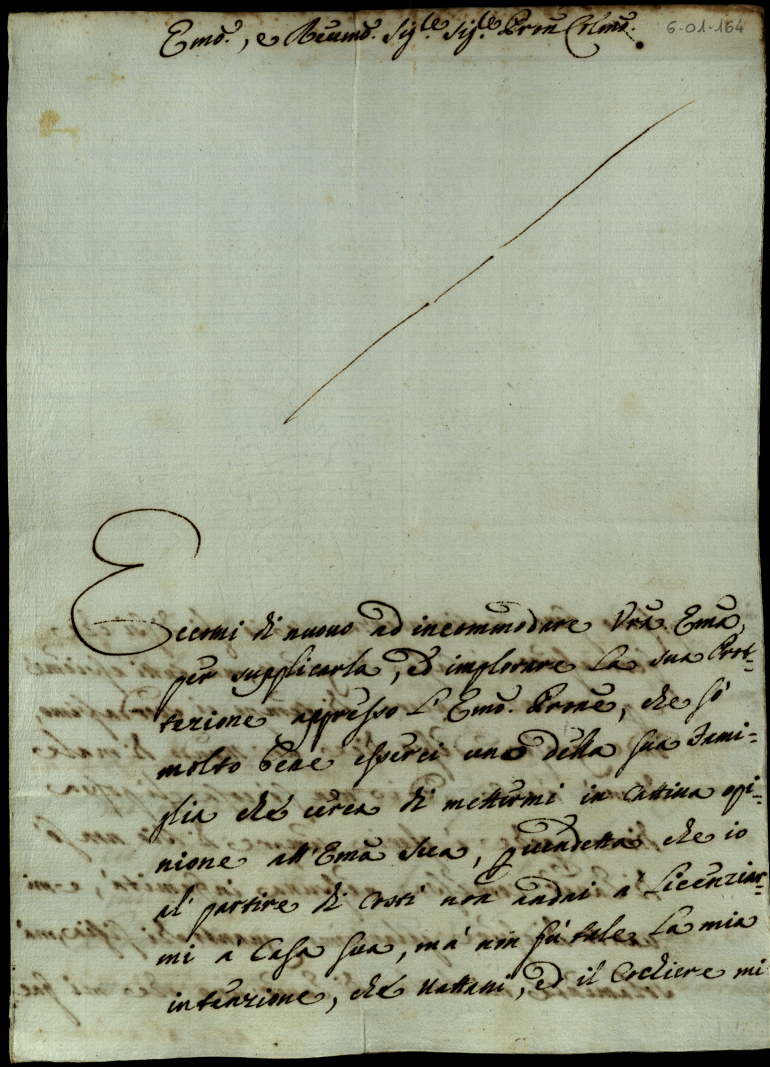 Emo., e Reumo. Sig.le Sig.le Pron Colmo. 6-01-164
Eccomi di nuouo ad incommodare Vrã. Emã,
per supplicarla, ed implorare la sua Prot=
tezione appresso l'Emo. Prone, che sò
molto bene esserci uno della sua Fami=
glia che cerca di mettermi in cattiua opi=
nione all'Emã sua, p uendetta che io
al' partire di costì non andai a' licenziar=
mi a Casa sua, mà non fù tale la mia
intenzione, che Nattani, ed il Cochiere mi